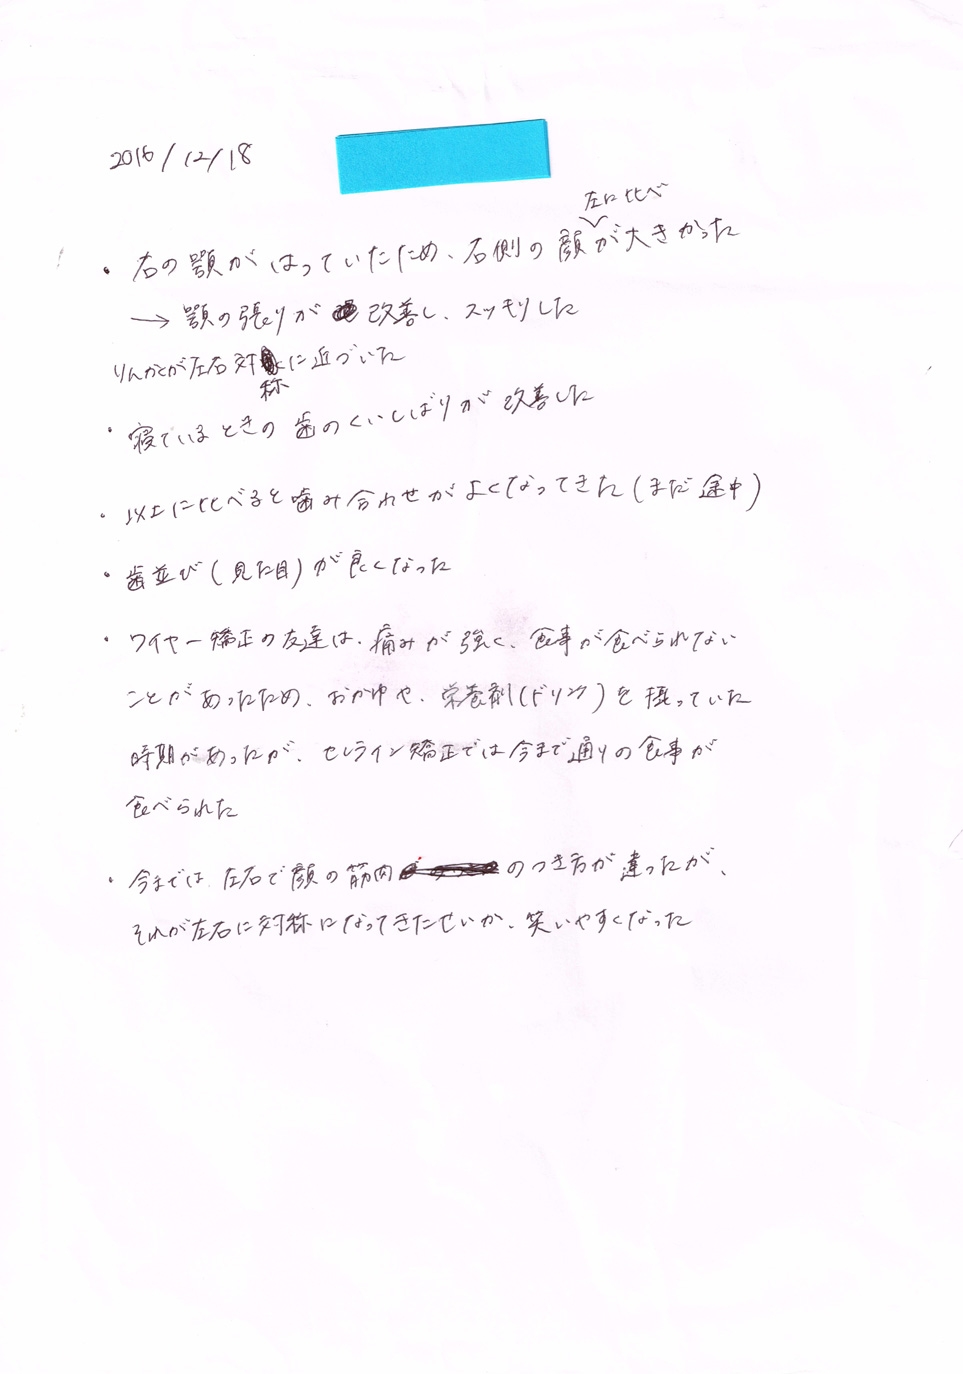 2016/12/18
左に比べ
・右の顎がはっていたため、右側の顔が大きかった
→ 顎の張りが改善し、スッキリした
りんかくが左右対称に近づいた
・寝ているときの歯のくいしばりが改善した
・以上に比べると噛み合わせがよくなってきた(まだ途中)
・歯並び(見た目)が良くなった
・ワイヤー矯正の友達は、痛みが強く、食事が食べられない
ことがあったため、おかゆや、栄養剤(ドリンク)を摂っていた
時期があったが、セレライン矯正では今まで通りの食事が
食べられた
・今までは左右で顔の筋肉のつき方が違ったが、
それが左右に対称になってきたせいか、笑いやすくなった